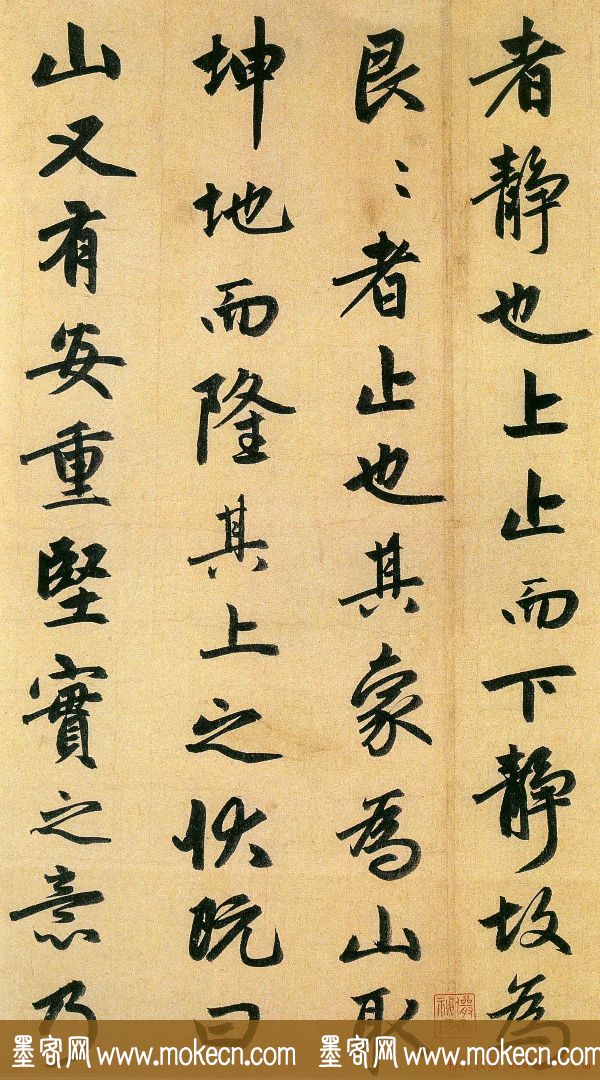 者静也上止而下静故為
艮〻者止也其象為山取
坤地而隆其上之状既曰
山又有安重堅實之意乃
墨客网 www.mokecn.com 墨客网 www.mokecn.com